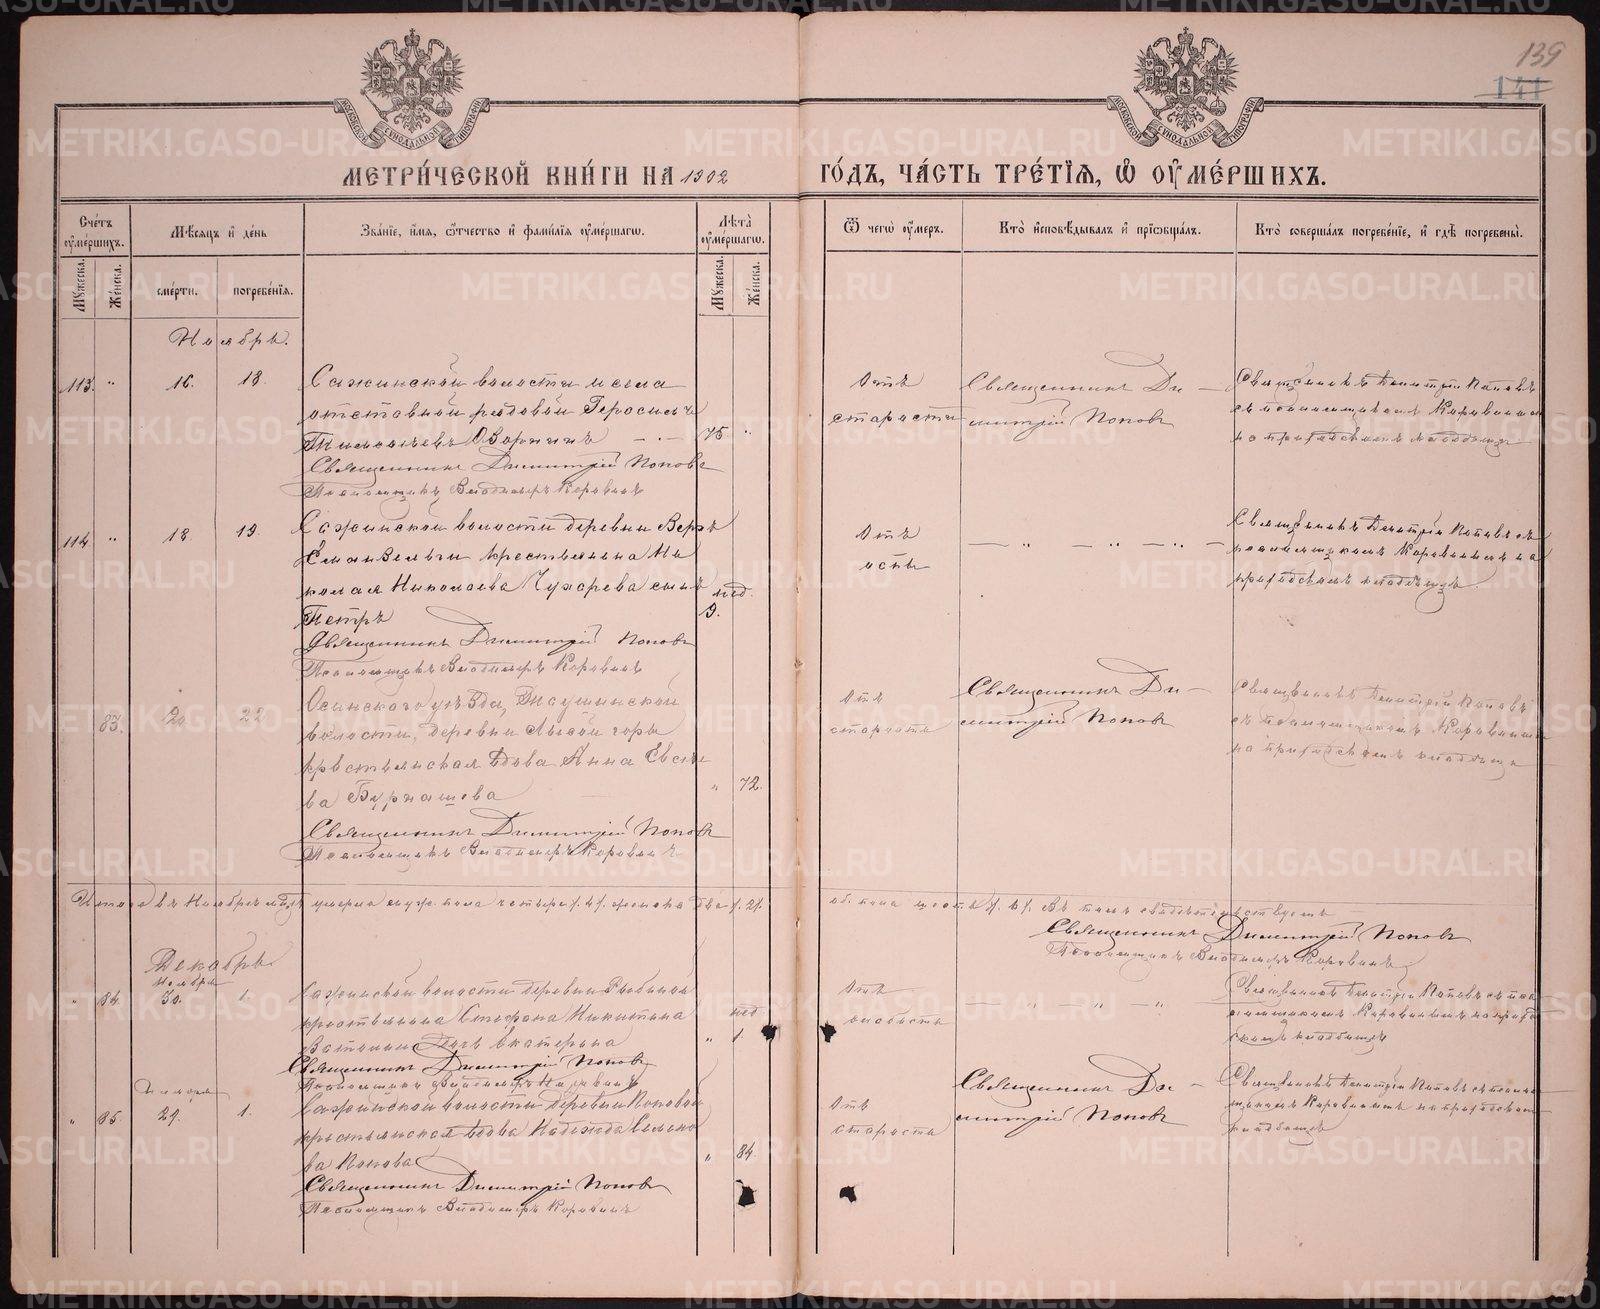 139
141
МОСКОВСКОЙ СѴНОДАЛЬНОЙ ТИПОГРАФІИ
МОСКОВСКОЙ СѴНОДАЛЬНОЙ ТИПОГРАФІИ
МЕТРИ́ЧЕСКОЙ КНИ́ГИ НА 1902 ГО́ДЪ, ЧА́СТЬ ТРЕ́ТІѦ, Ѡ ОУМЕ́РШИХЪ.
Сче́тъ оуме́ршихъ.
Мѣсяцъ и де́нь
Зва́ніе, и́мѧ, ѻ҆́тчество и фами́лїѧ оуме́ршагѡ.
Лѣта̀ оуме́ршагѡ.
Ѿ чегѡ̀ оу́меръ.
Кто̀ исповѣ́дывалъ и прїѡбща́лъ.
Кто̀ соверша́лъ погребе́нїе, и гдѣ̀ погребены̀.
Му́жеска.
Же́нска.
сме́рти.
погребе́нїя.
Му́жеска.
Же́нска.
Ноябрь.
113. " 16. 18. Сажинской волости и села
отставной рядовой Герасимъ
Тимофеевъ Озорнинъ 75 "
Священникъ Димитрій Поповъ
Псаломщикъ Владимиръ Коровинъ
Отъ
старости
Священникъ Ди-
митрій Поповъ
Священникъ Димитрій Поповъ
съ псаломщикомъ Коровинымъ
на приходскомъ кладбищѣ
114. " 18 19. Сажинской волости деревни Верхъ
крестьянина Ни
колая Николаева сынъ
Петръ нед. 9.
Священникъ Димитрій Поповъ
Псаломщикъ Владимиръ Коровинъ
Отъ
оспы
— " — " — " —
Священникъ Димитрій Поповъ съ
псаломщикомъ Коровинымъ на
приходскомъ кладбищѣ
83. 20 22 Осинскаго уѣзда,
волости, деревни Лысой горы
крестьянская вдова Анна Евсѣе
ва Бурнашева " 72.
Священникъ Димитрій Поповъ
Псаломщикъ Владимиръ Коровинъ
Отъ
старости
Священникъ Ди-
митрій Поповъ
Священникъ Димитрій Поповъ
съ псаломщикомъ Коровинымъ
на приходскомъ кладбищѣ
Итого въ Ноябрѣ м-цѣ умерло муж. пола четыре /4/, женска два /2/.
об. пола шесть /6/. Въ томъ свидѣтельствуемъ
Священникъ Димитрій Поповъ
Псаломщикъ Владимиръ Коровинъ
Декабрь
" 84. Ноября 30. 1. Сажинской волости деревни
крестьянина Стефана Никитина
дочь Екатерина нед " 1.
Священникъ Димитрій Поповъ
Псаломщикъ Владимиръ Коровинъ
Отъ
слабости
" — " — "
Священникъ Димитрій Поповъ съ пса
ломщикомъ Коровинымъ на приход
скомъ кладбищѣ
" 85. Ноября 29. 1. Сажинской волости деревни Поповой
крестьянская вдова Надежда
ва Попова " 84.
Священникъ Димитрій Поповъ
Псаломщикъ Владимиръ Коровинъ
Отъ
старости
Священникъ Ди-
митрій Поповъ
Священникъ Димитрій Поповъ съ псалом
щикомъ Коровинымъ на приходскомъ
кладбищѣ
METRIKI.GASO-URAL.RU